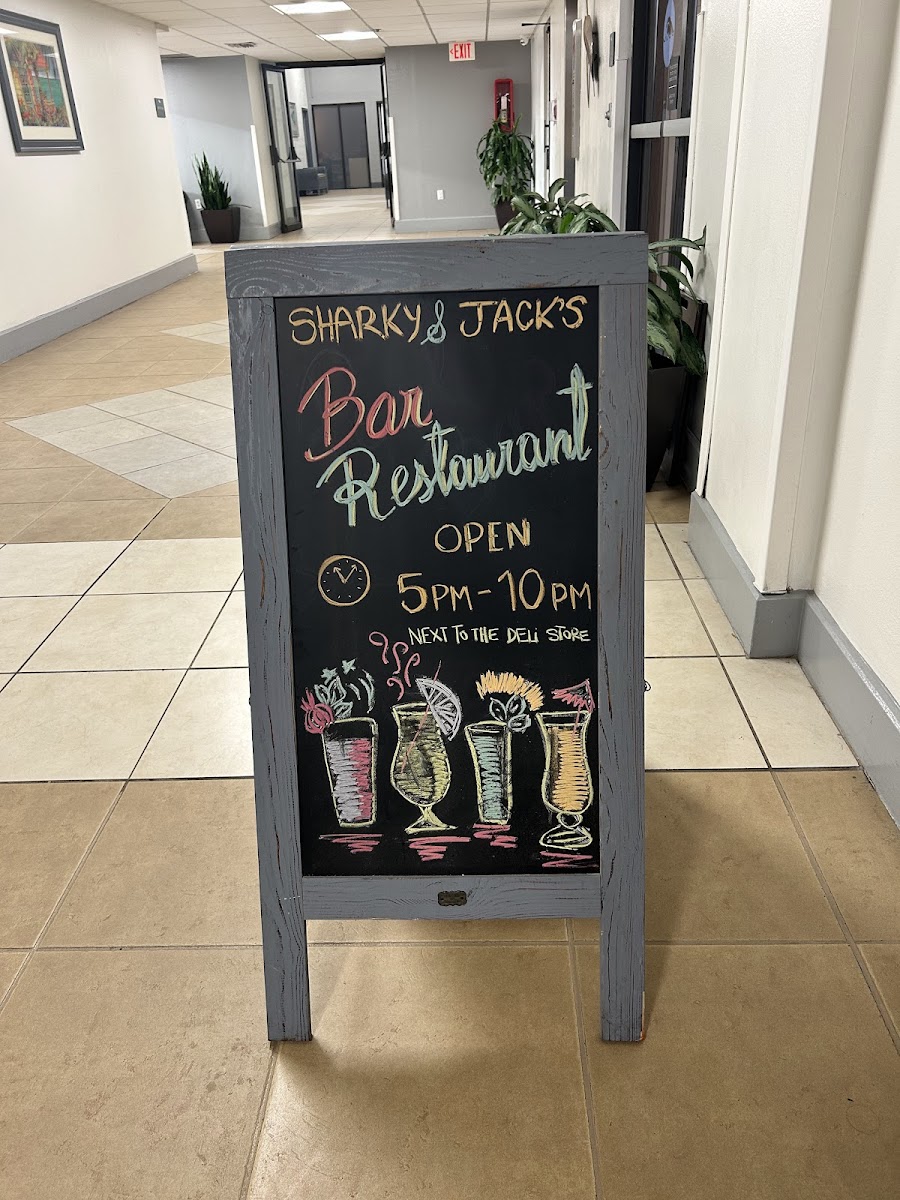 EXIT
SHARKY & JACK'S
Bar
Restaurant
OPEN
5PM - 10PM
NEXT TO THE DELI STORE